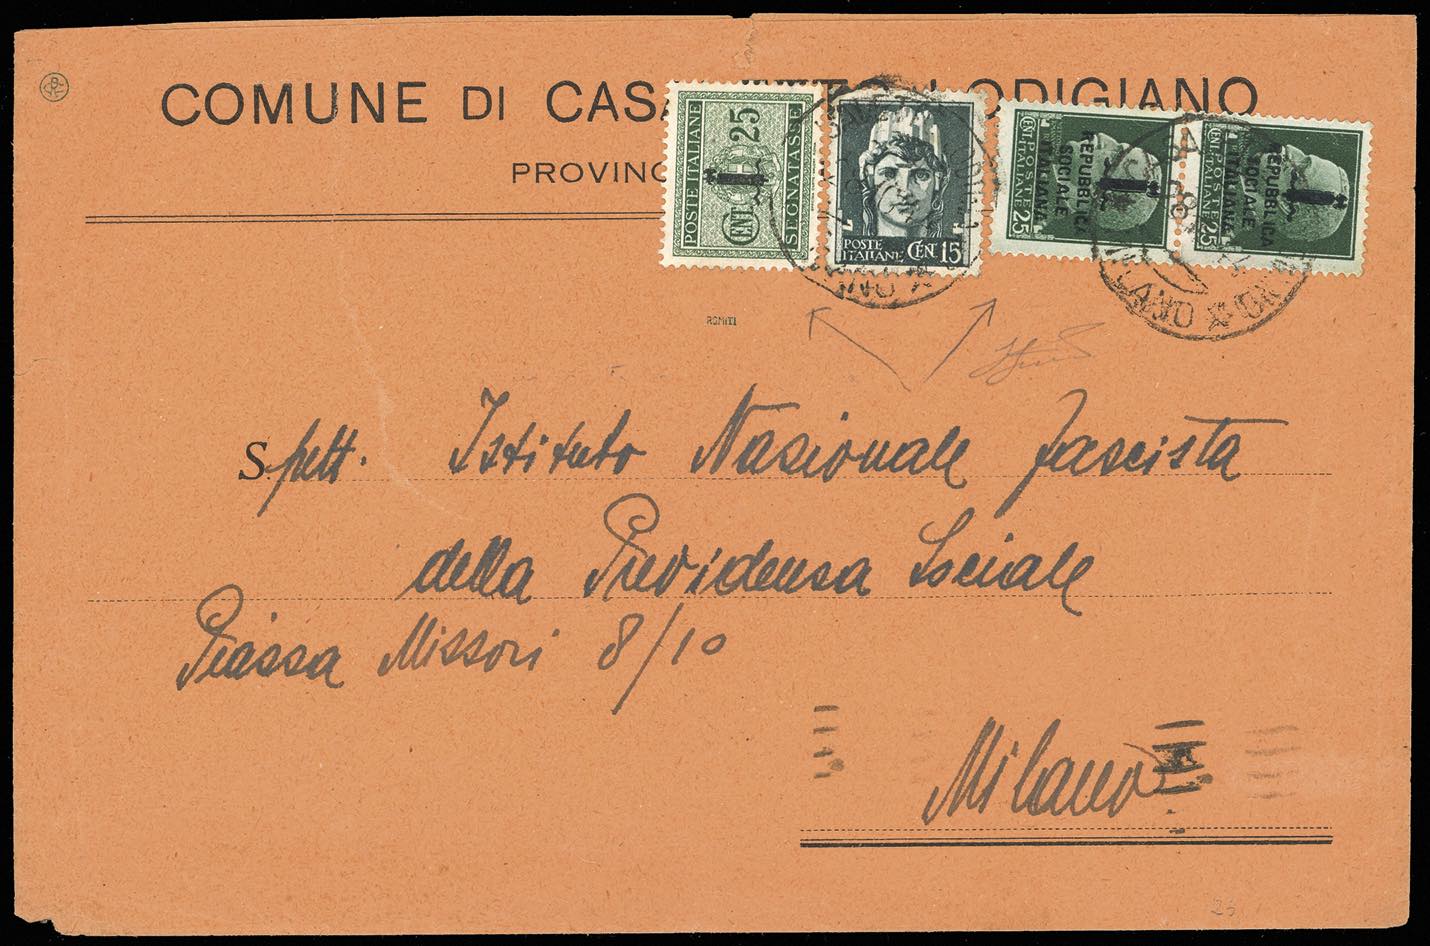 COMUNE DI CASA LODIGIANO
PROVINC
POSTE ITALIANE
CENT 25
SEGNATASSE
POSTE ITALIANE CEN. 15
CENT. POSTE ITALIANE 25
REPUBBLICA SOCIALE ITALIANA
CENT. POSTE ITALIANE 25
REPUBBLICA SOCIALE ITALIANA
MILANO
ROMITI
Spett. Istituto Nazionale fascista
della Previdenza Sociale
Piazza Missori 8/10
Milano
23